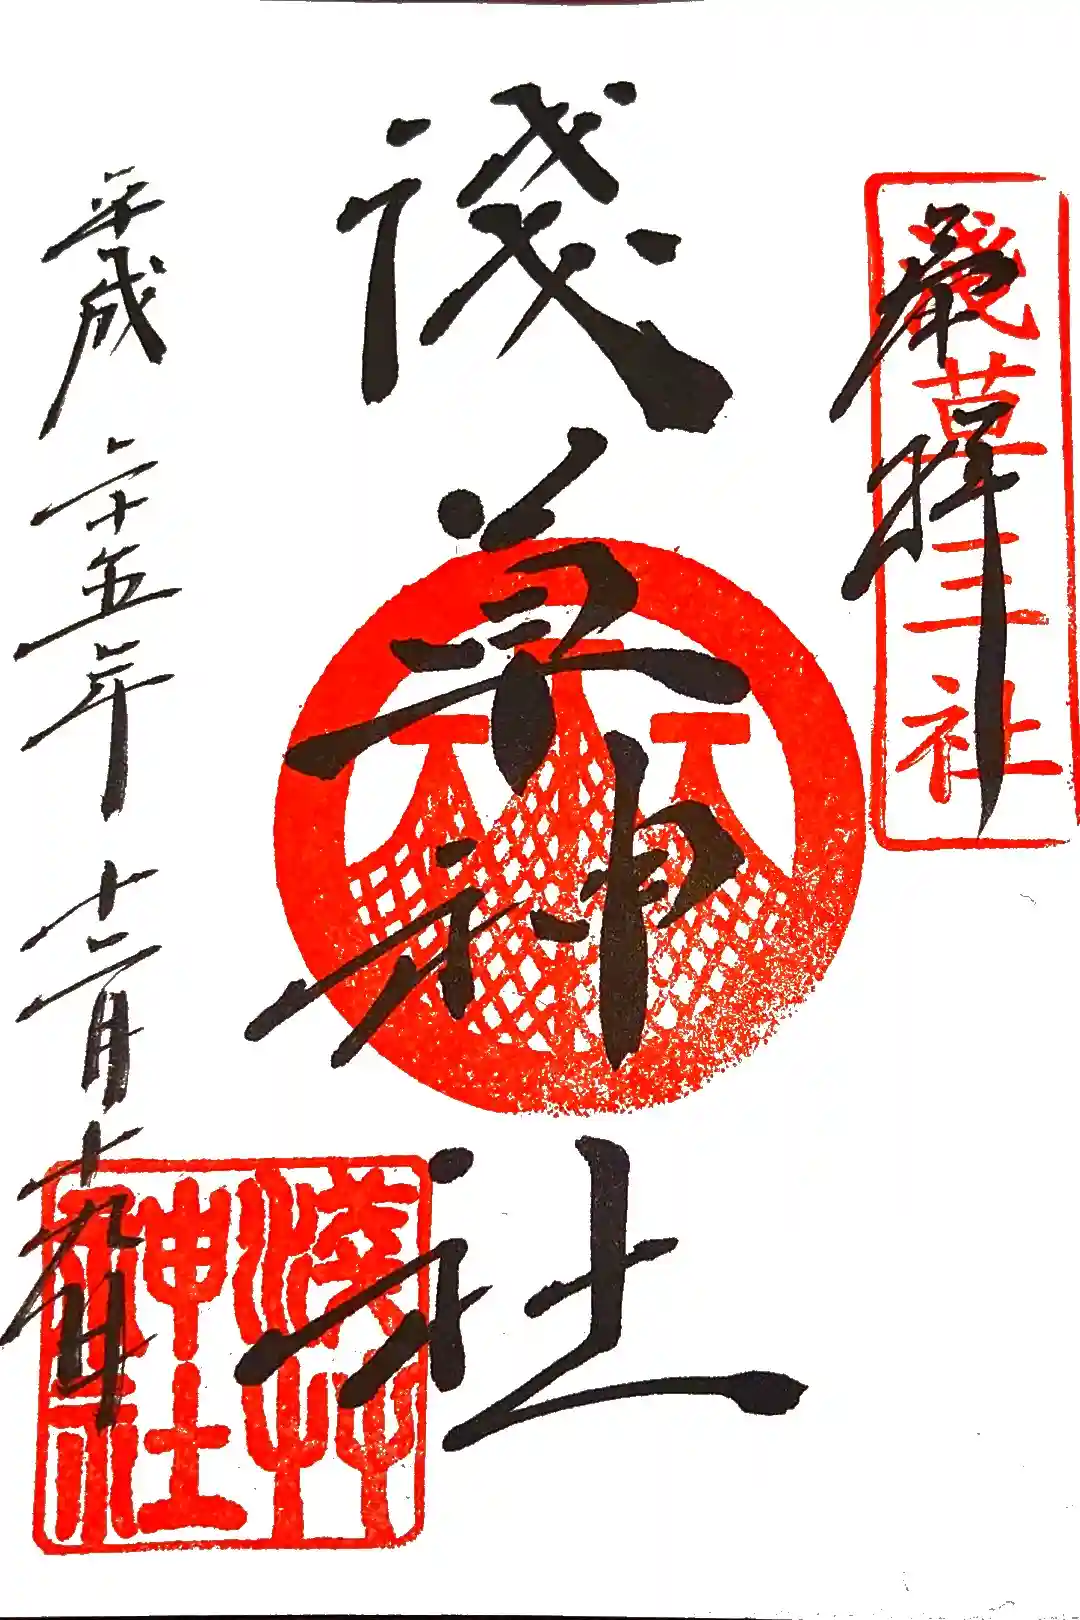 奉拝
淺草三社
淺草神社
平成二十五年十二月十九日
淺艸神社